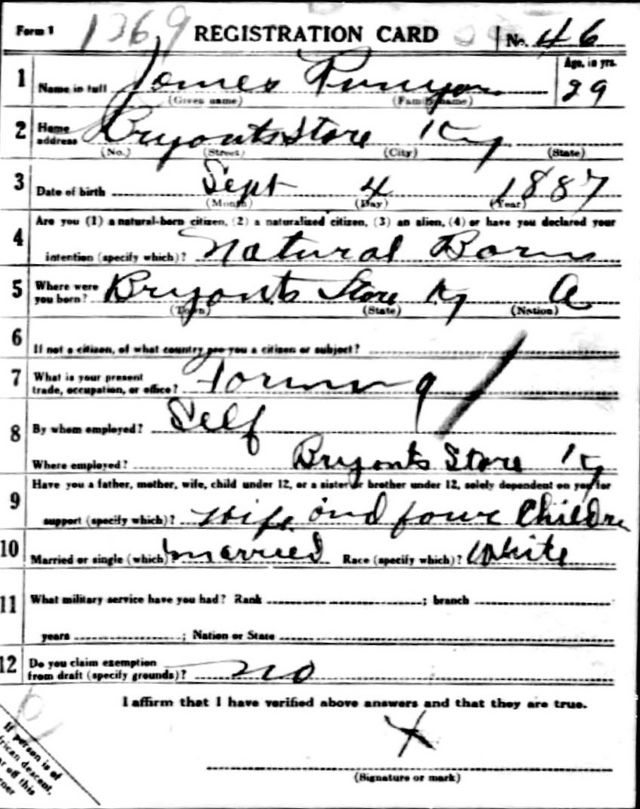 Form 1 1369 REGISTRATION CARD No. 46
1 Name in full James Runyon Age, in yrs. 29
(Given name) (Family name)
2 Home address Bryants Store Ky
(No.) (Street) (City) (State)
3 Date of birth Sept 4 1887
(Month) (Day) (Year)
4 Are you (1) a natural-born citizen, (2) a naturalized citizen, (3) an alien, (4) or have you declared your
intention (specify which)? Natural Born
5 Where were you born? Bryants Store Ky A
(Town) (State) (Nation)
6 If not a citizen, of what country are you a citizen or subject?
7 What is your present trade, occupation, or office? Farming
8 By whom employed? Self
Where employed? Bryants Store Ky
9 Have you a father, mother, wife, child under 12, or a sister or brother under 12, solely dependent on you for
support (specify which)? Wife and four Childre
10 Married or single (which)? Married Race (specify which)? White
11 What military service have you had? Rank ; branch
years ; Nation or State
12 Do you claim exemption from draft (specify grounds)? no
I affirm that I have verified above answers and that they are true.
X
(Signature or mark)
If person is of
rican descent,
off this